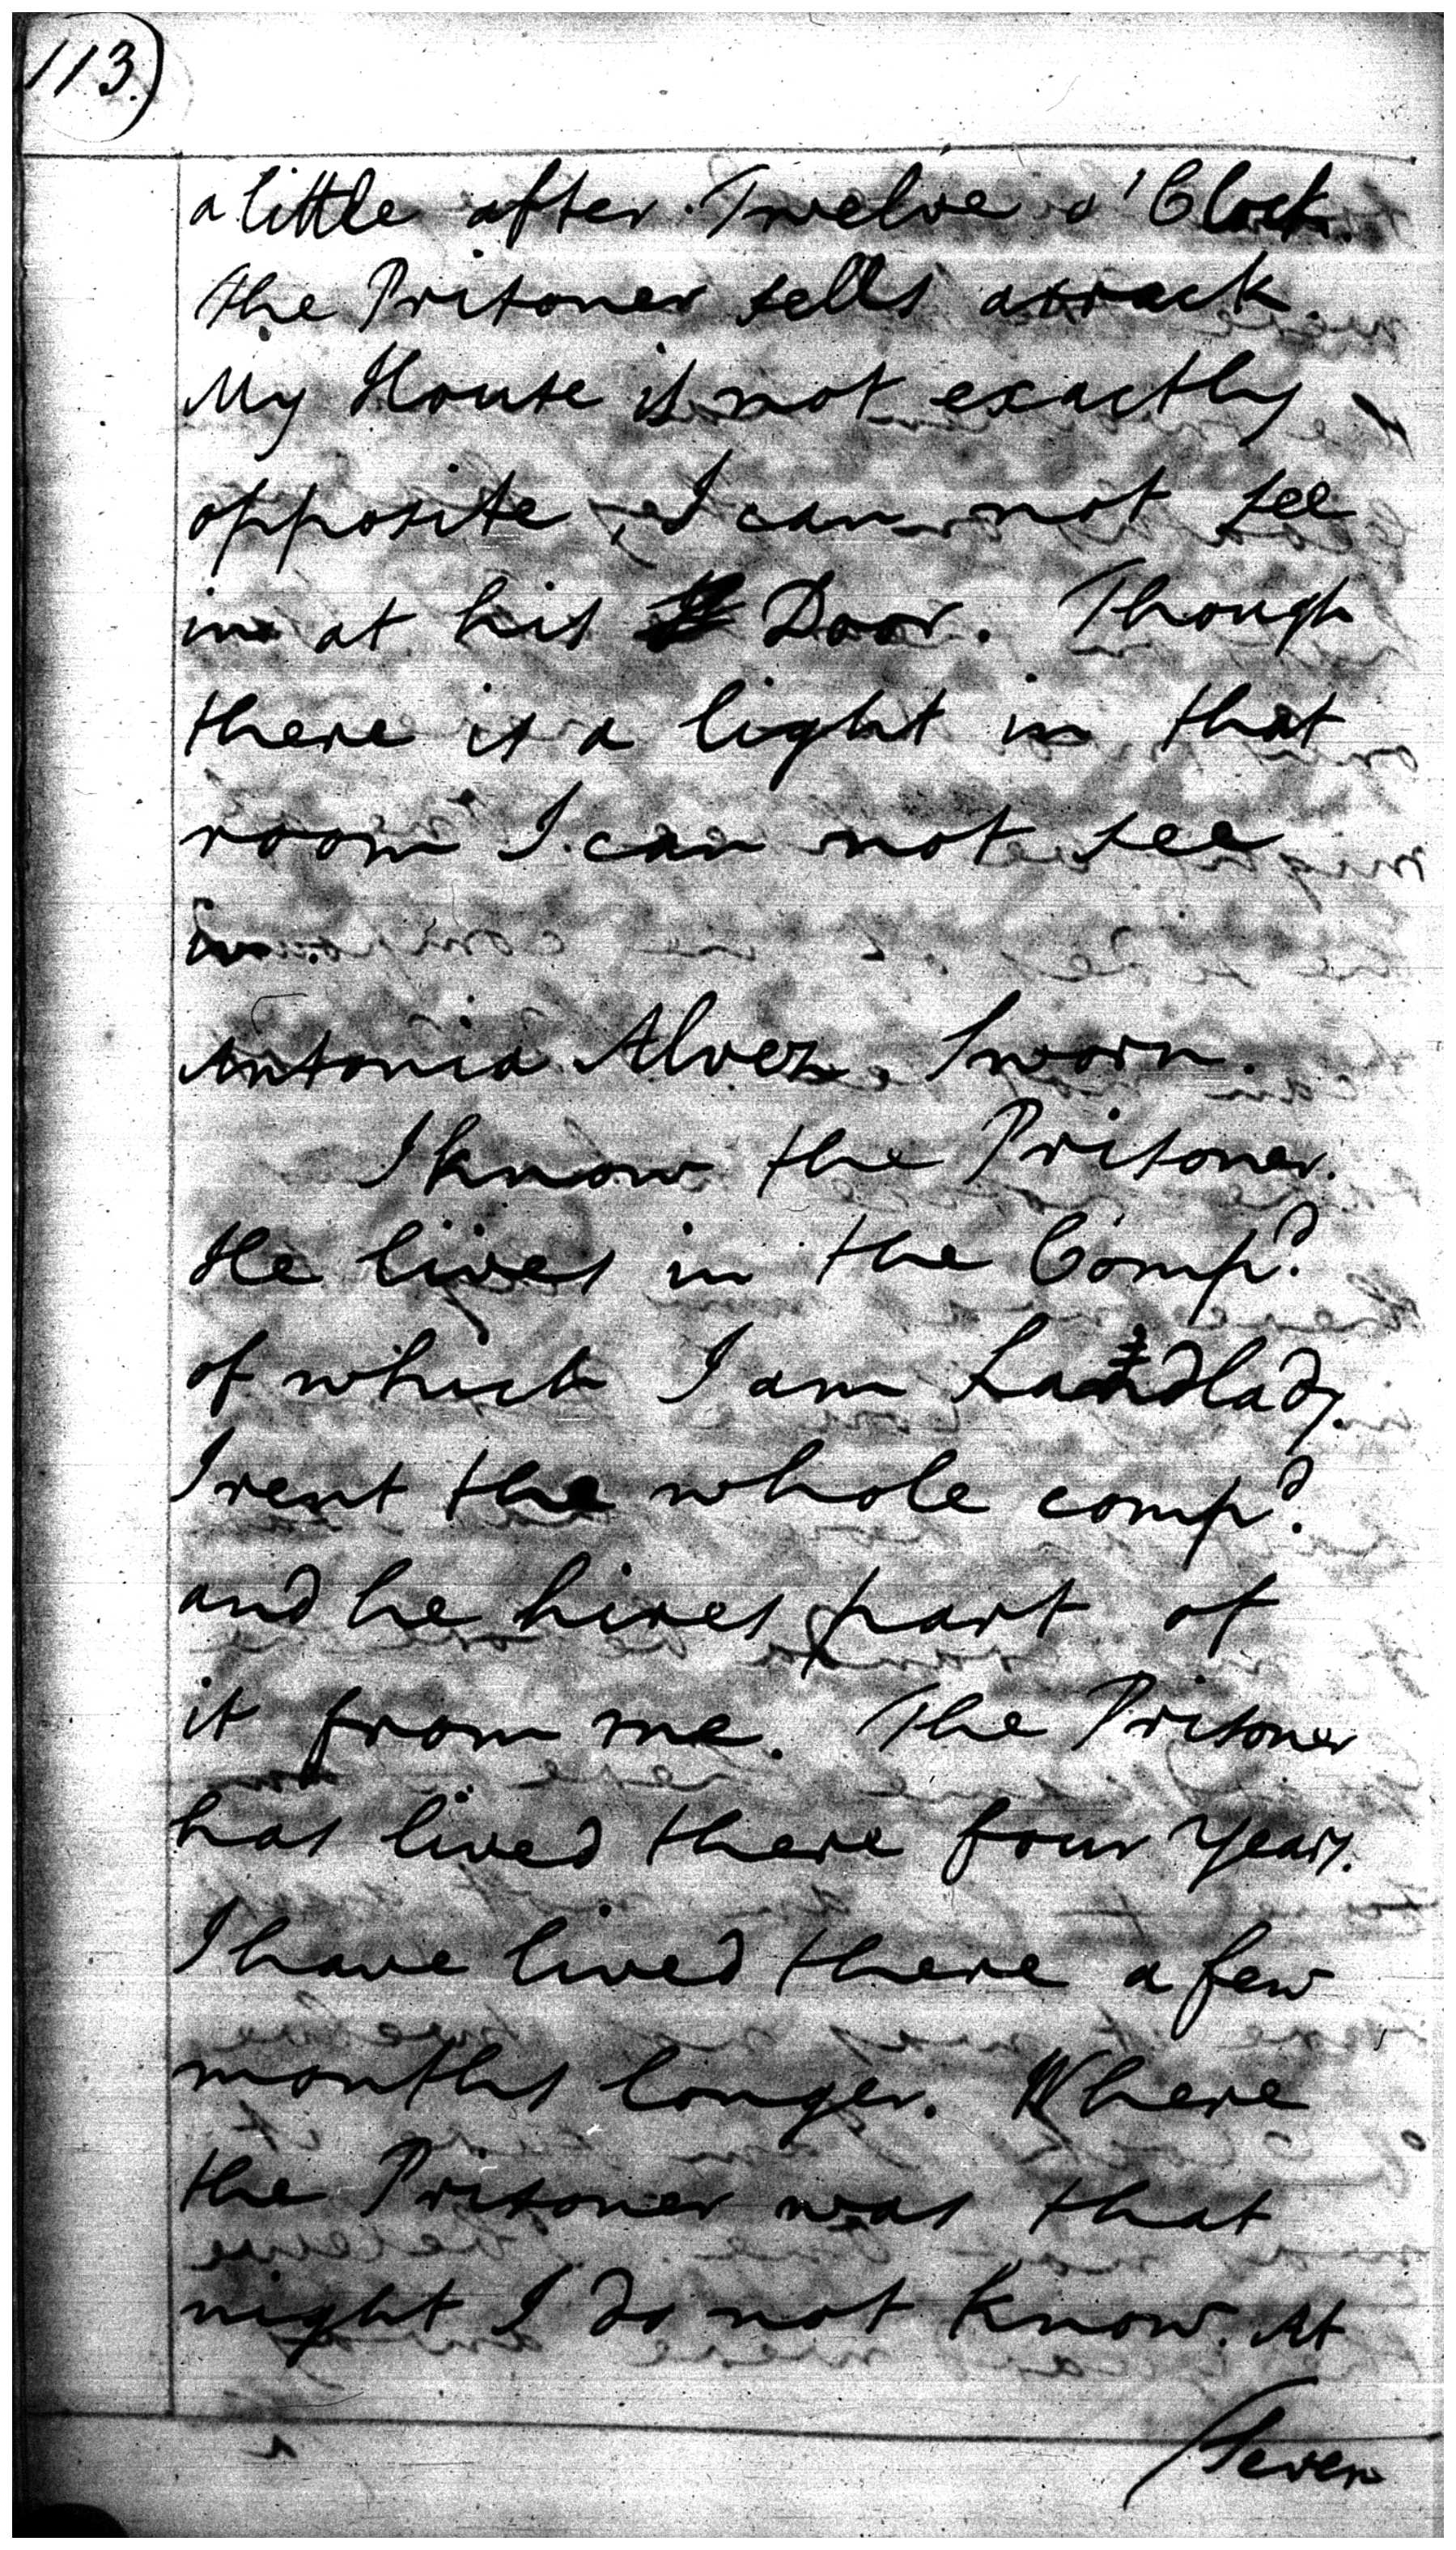 113.)
a little after Twelve o'Clock.
the Prisoner sells arrack.
My House is not exactly
opposite, I can not see
in at his Door. Though
there is a light in that
room I can not see
in.
Antonia Alvez, Sworn.
I know the Prisoner.
He lives in the Compd.
of which I am Landlady.
I rent the whole compd.
and he hires part of
it from me. The Prisoner
has lived there four years.
I have lived there a few
months longer. Where
the Prisoner was that
night I do not know. At
Seven